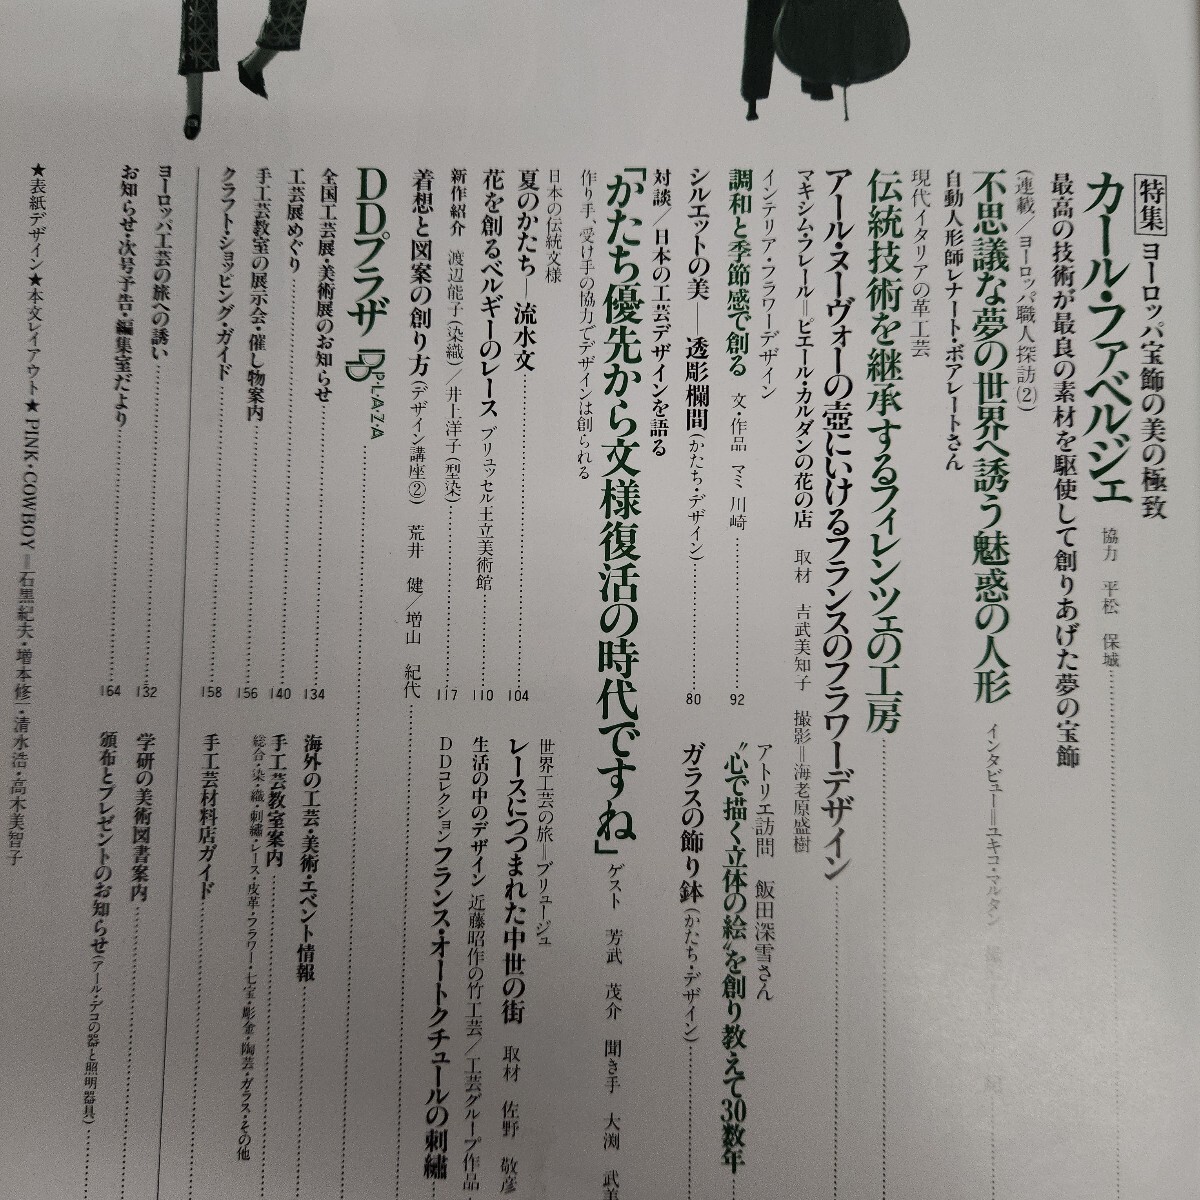 特集 ヨーロッパ宝飾の美の極致
カール・ファベルジェ 協力 平松 保城
最高の技術が最良の素材を駆使して創りあげた夢の宝飾
(連載/ヨーロッパ職人探訪②)
不思議な夢の世界へ誘う魅惑の人形 インタビュー=ユキコ・マルタン
自動人形師レナート・ボアレートさん
現代イタリアの革工芸
伝統技術を継承するフィレンツェの工房
アール・ヌーヴォーの壺にいけるフランスのフラワーデザイン
マキシム・フレール=ピエール・カルダンの花の店 取材 吉武美知子 撮影=海老原盛樹
インテリア・フラワーデザイン
調和と季節感で創る 文・作品 マミ川崎 92
アトリエ訪問 飯田深雪さん
“心で描く立体の絵”を創り教えて30数年
シルエットの美—透彫欄間(かたち・デザイン) 80
ガラスの飾り鉢(かたち・デザイン)
対談/日本の工芸デザインを語る
「かたち優先から文様復活の時代ですね」 ゲスト 芳武 茂介 聞き手 大渕 武美
作り手、受け手の協力でデザインは創られる
日本の伝統文様
夏のかたち—流水文 104
世界工芸の旅=ブリュージュ
レースにつつまれた中世の街 取材 佐野 敬彦
花を創るベルギーのレース ブリュッセル王立美術館 110
生活の中のデザイン 近藤昭作の竹工芸/工芸グループ作品
新作紹介 渡辺能子(染織)/井上洋子(型染) 117
DDコレクション フランス・オートクチュールの刺繡
着想と図案の創り方(デザイン講座②) 荒井 健/増山 紀代
DDプラザ DD PLAZA
全国工芸展・美術展のお知らせ 134
海外の工芸・美術・エベント情報
工芸展めぐり 140
手工芸教室案内
総合・染・織・刺繡・レース・皮革・フラワー・七宝・彫金・陶芸・ガラス・その他
手工芸教室の展示会・催し物案内 156
クラフト・ショッピング・ガイド 158
手工芸材料店ガイド
ヨーロッパ工芸の旅への誘い 132
学研の美術図書案内
お知らせ・次号予告・編集室だより 164
頒布とプレゼントのお知らせ(アール・デコの器と照明器具)
★表紙デザイン★本文レイアウト★PINK・COWBOY=石黒紀夫・増本修二・清水浩・高木美智子